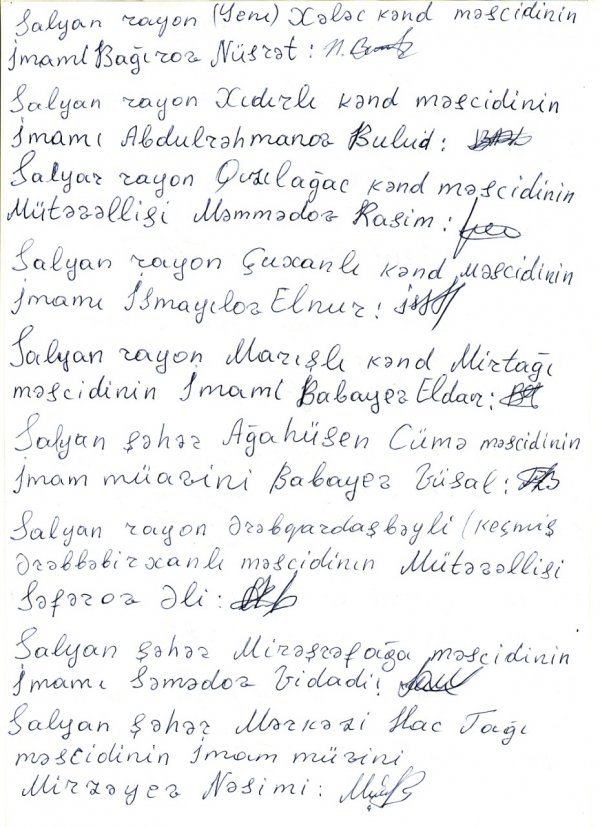 Salyan rayon (Yeni) Xələc kənd məscidinin
İmamı Bağırov Nüsrət:
Salyan rayon Xıdırlı kənd məscidinin
İmamı Abdulrəhmanov Bulud:
Salyan rayon Qızılağac kənd məscidinin
Mütəvəllisi Məmmədov Rasim:
Salyan rayon Çuxanlı kənd məscidinin
İmamı İsmayılov Elnur:
Salyan rayon Marışlı kənd Mirtağı
məscidinin İmamı Babayev Eldar:
Salyan şəhər Ağahüsen Cümə məscidinin
İmam müavini Babayev Vüsal:
Salyan rayon Ərəbqardaşbəyli (keçmiş
Ərəbbəbirxanlı məscidinin Mütəvəllisi
Səfərov Əli:
Salyan şəhər Mirəşrəfağa məscidinin
İmamı Səmədov Vidadi:
Salyan şəhər Mərkəzi Hac Tağı
məscidinin İmam müvini
Mirzəyev Nəsimi: